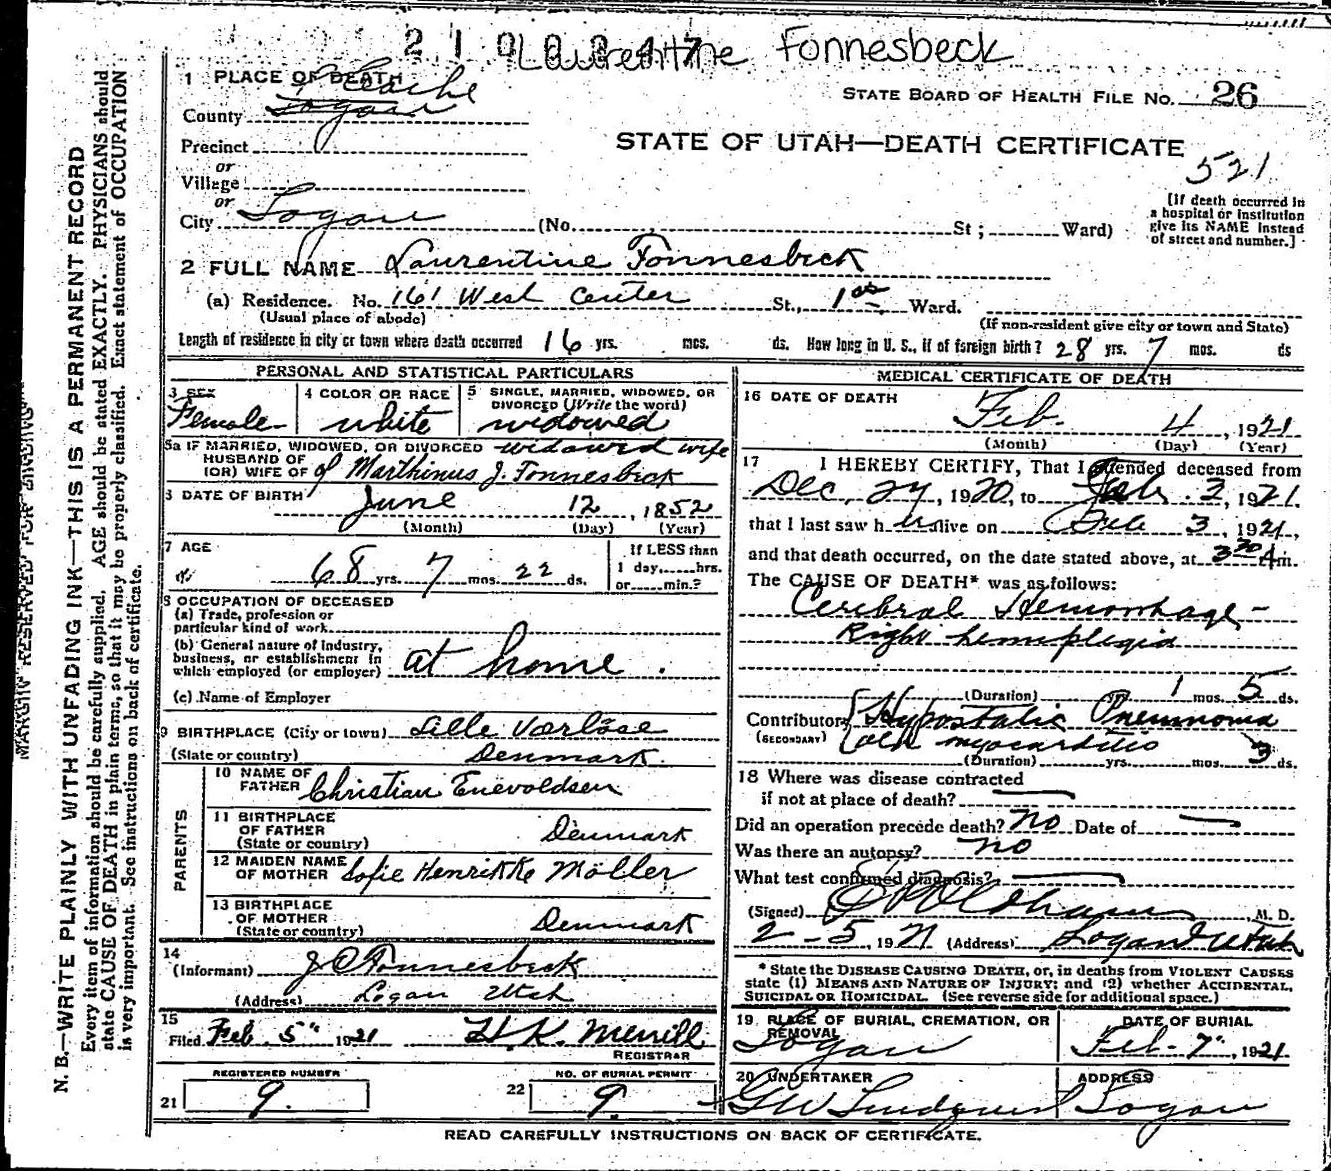 2100247
Laurentine Fonnesbeck
1 PLACE OF DEATH
County Logan Cache
STATE BOARD OF HEALTH FILE No. 26
Precinct
STATE OF UTAH—DEATH CERTIFICATE
521
or
Village
or
City Logan (No. St; Ward)
[If death occurred in
a hospital or institution
give its NAME instead
of street and number.]
2 FULL NAME Laurentine Fonnesbeck
(a) Residence. No. 161 West Center St., 1st Ward.
(Usual place of abode) (If non-resident give city or town and State)
Length of residence in city or town where death occurred 16 yrs. mos. ds. How long in U. S., if of foreign birth? 28 yrs. 7 mos. ds
PERSONAL AND STATISTICAL PARTICULARS
3 SEX
Female
4 COLOR OR RACE
white
5 SINGLE, MARRIED, WIDOWED, OR
DIVORCED (Write the word)
widowed
5a IF MARRIED, WIDOWED, OR DIVORCED widowed wife
HUSBAND OF
(OR) WIFE OF of Marthinus J. Fonnesbeck
6 DATE OF BIRTH June 12, 1852
(Month) (Day) (Year)
7 AGE
68 yrs. 7 mos. 22 ds.
If LESS than
1 day, hrs.
or min.?
8 OCCUPATION OF DECEASED
(a) Trade, profession or
particular kind of work
(b) General nature of Industry,
business, or establishment in
which employed (or employer) at home.
(c) Name of Employer
9 BIRTHPLACE (City or town) Lille Værlöse
(State or country) Denmark.
PARENTS
10 NAME OF
FATHER Christian Enevoldsen
11 BIRTHPLACE
OF FATHER
(State or country) Denmark
12 MAIDEN NAME
OF MOTHER Sofie Henrikke Möller
13 BIRTHPLACE
OF MOTHER
(State or country) Denmark
14
(Informant) J O Fonnesbeck
(Address) Logan Utah
15
Filed Feb. 5", 1921 H. K. Merrill
REGISTRAR
REGISTERED NUMBER
21 9.
NO. OF BURIAL PERMIT
22 9.
MEDICAL CERTIFICATE OF DEATH
16 DATE OF DEATH
Feb. 4, 1921
(Month) (Day) (Year)
17 I HEREBY CERTIFY, That I attended deceased from
Dec. 24, 1920, to Feb. 3, 1921.
that I last saw her alive on Feb 3, 1921,
and that death occurred, on the date stated above, at 3 30 A m.
The CAUSE OF DEATH* was as follows:
Cerebral Hemorrhage—
Right hemiplegia
(Duration) yrs. 1 mos. 5 ds.
Contributory Hypostatic Pneumonia
(SECONDARY) old myocarditis
(Duration) yrs. mos. 3 ds.
18 Where was disease contracted
if not at place of death? —
Did an operation precede death? No Date of —
Was there an autopsy? no
What test confirmed diagnosis? —
(Signed) M. D.
2-5, 1921 (Address) Logan Utah
* State the DISEASE CAUSING DEATH, or, in deaths from VIOLENT CAUSES
state (1) MEANS AND NATURE OF INJURY; and (2) whether ACCIDENTAL,
SUICIDAL OR HOMICIDAL. (See reverse side for additional space.)
19 PLACE OF BURIAL, CREMATION, OR
REMOVAL
Logan
DATE OF BURIAL
Feb. 7", 1921
20 UNDERTAKER
G W Lindquist
ADDRESS
Logan
READ CAREFULLY INSTRUCTIONS ON BACK OF CERTIFICATE.
MARGIN RESERVED FOR BINDING
N. B.—WRITE PLAINLY WITH UNFADING INK—THIS IS A PERMANENT RECORD
Every item of information should be carefully supplied. AGE should be stated EXACTLY. PHYSICIANS should
state CAUSE OF DEATH in plain terms, so that it may be properly classified. Exact statement of OCCUPATION
is very important. See instructions on back of certificate.